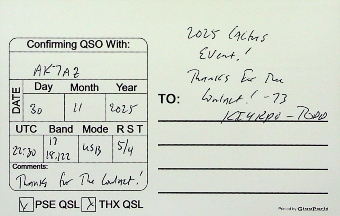 Confirming QSO With:
AK7AZ
DATE
Day Month Year
30 11 2025
UTC Band Mode R S T
22:30 17 18.122 USB 5/4
Comments:
Thanks For The Contact!
PSE QSL THX QSL
2025 Cactus
Event!
Thanks For The
Contact! -73
TO:
Printed by